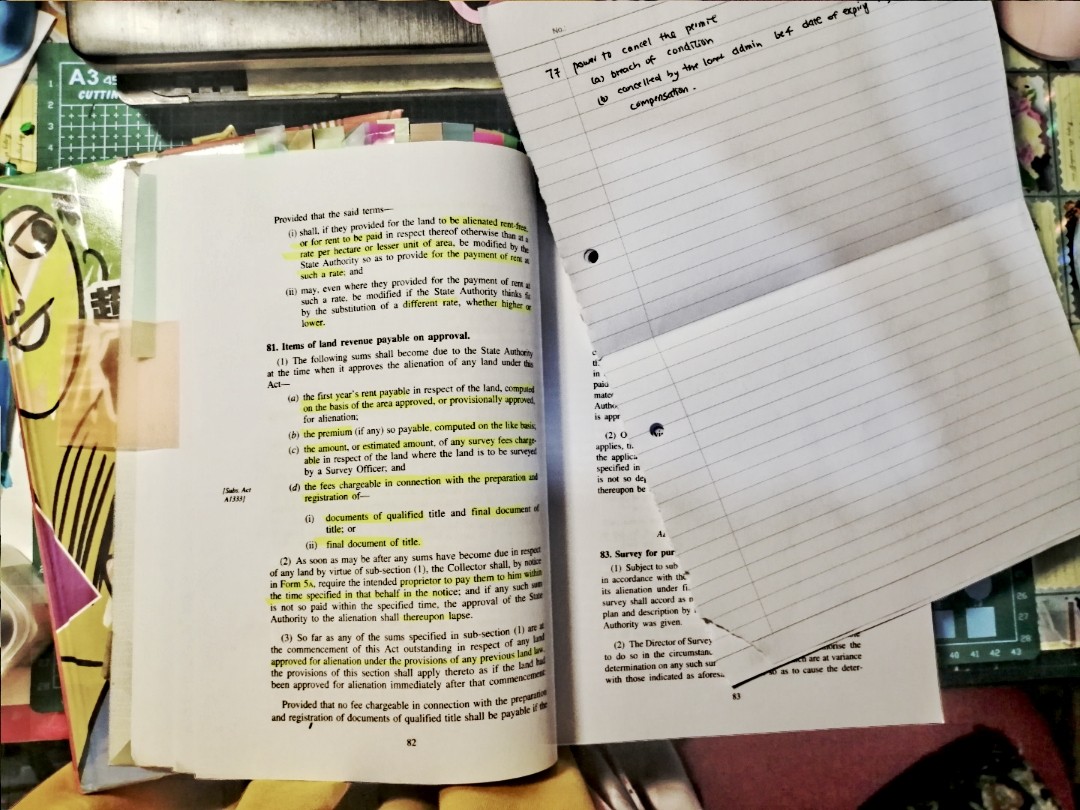 A3
CUTTIN
No.
77 power to cancel the permit
(a) breach of condition
(b) cancelled by the land admin bef date of expiry
compensation.
Provided that the said terms—
(i) shall, if they provided for the land to be alienated rent-free,
or for rent to be paid in respect thereof otherwise than at a
rate per hectare or lesser unit of area, be modified by the
State Authority so as to provide for the payment of rent at
such a rate; and
(ii) may, even where they provided for the payment of rent at
such a rate, be modified if the State Authority thinks fit
by the substitution of a different rate, whether higher or
lower.
81. Items of land revenue payable on approval.
(1) The following sums shall become due to the State Authority
at the time when it approves the alienation of any land under this
Act—
(a) the first year's rent payable in respect of the land, computed
on the basis of the area approved, or provisionally approved,
for alienation;
(b) the premium (if any) so payable, computed on the like basis;
(c) the amount, or estimated amount, of any survey fees charge-
able in respect of the land where the land is to be surveyed
by a Survey Officer; and
(d) the fees chargeable in connection with the preparation and
registration of—
[Subs. Act
A1333]
(i) documents of qualified title and final document of
title; or
(ii) final document of title.
(2) As soon as may be after any sums have become due in respect
of any land by virtue of sub-section (1), the Collector shall, by notice
in Form 5A, require the intended proprietor to pay them to him within
the time specified in that behalf in the notice; and if any such sum
is not so paid within the specified time, the approval of the State
Authority to the alienation shall thereupon lapse.
(3) So far as any of the sums specified in sub-section (1) are at
the commencement of this Act outstanding in respect of any land
approved for alienation under the provisions of any previous land law,
the provisions of this section shall apply thereto as if the land had
been approved for alienation immediately after that commencement:
Provided that no fee chargeable in connection with the preparation
and registration of documents of qualified title shall be payable if the
82
in
paid
mater
Autho
is appr
(2) O
applies, t
the applica
specified in
is not so de
thereupon be
83. Survey for pur
(1) Subject to sub
in accordance with the
its alienation under
survey shall accord as
plan and description by
Authority was given.
(2) The Director of Survey
to do so in the circumstanc
determination on any such sur
with those indicated as aforesa
orise the
ch are at variance
so as to cause the deter-
83
26
27
28
40 41 42 43